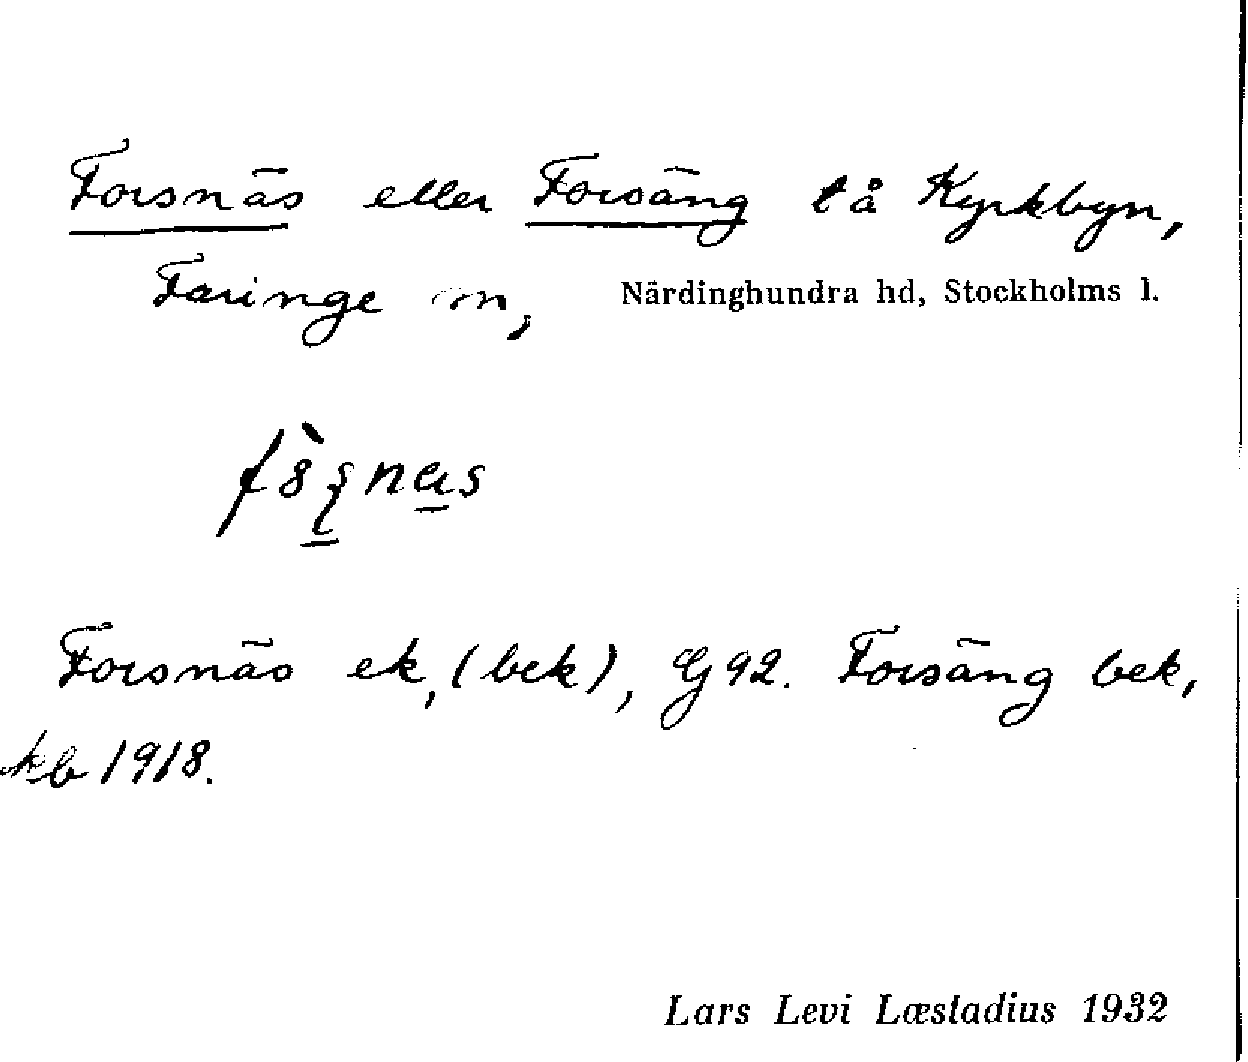 Forsnäs eller Forsäng lå Kyrkbyn,
Faringe sn, Närdinghundra hd, Stockholms l.
Forsnäs ek, (bek), G 92. Forsäng bek,
kb 1918.
Lars Levi Læstadius 1932